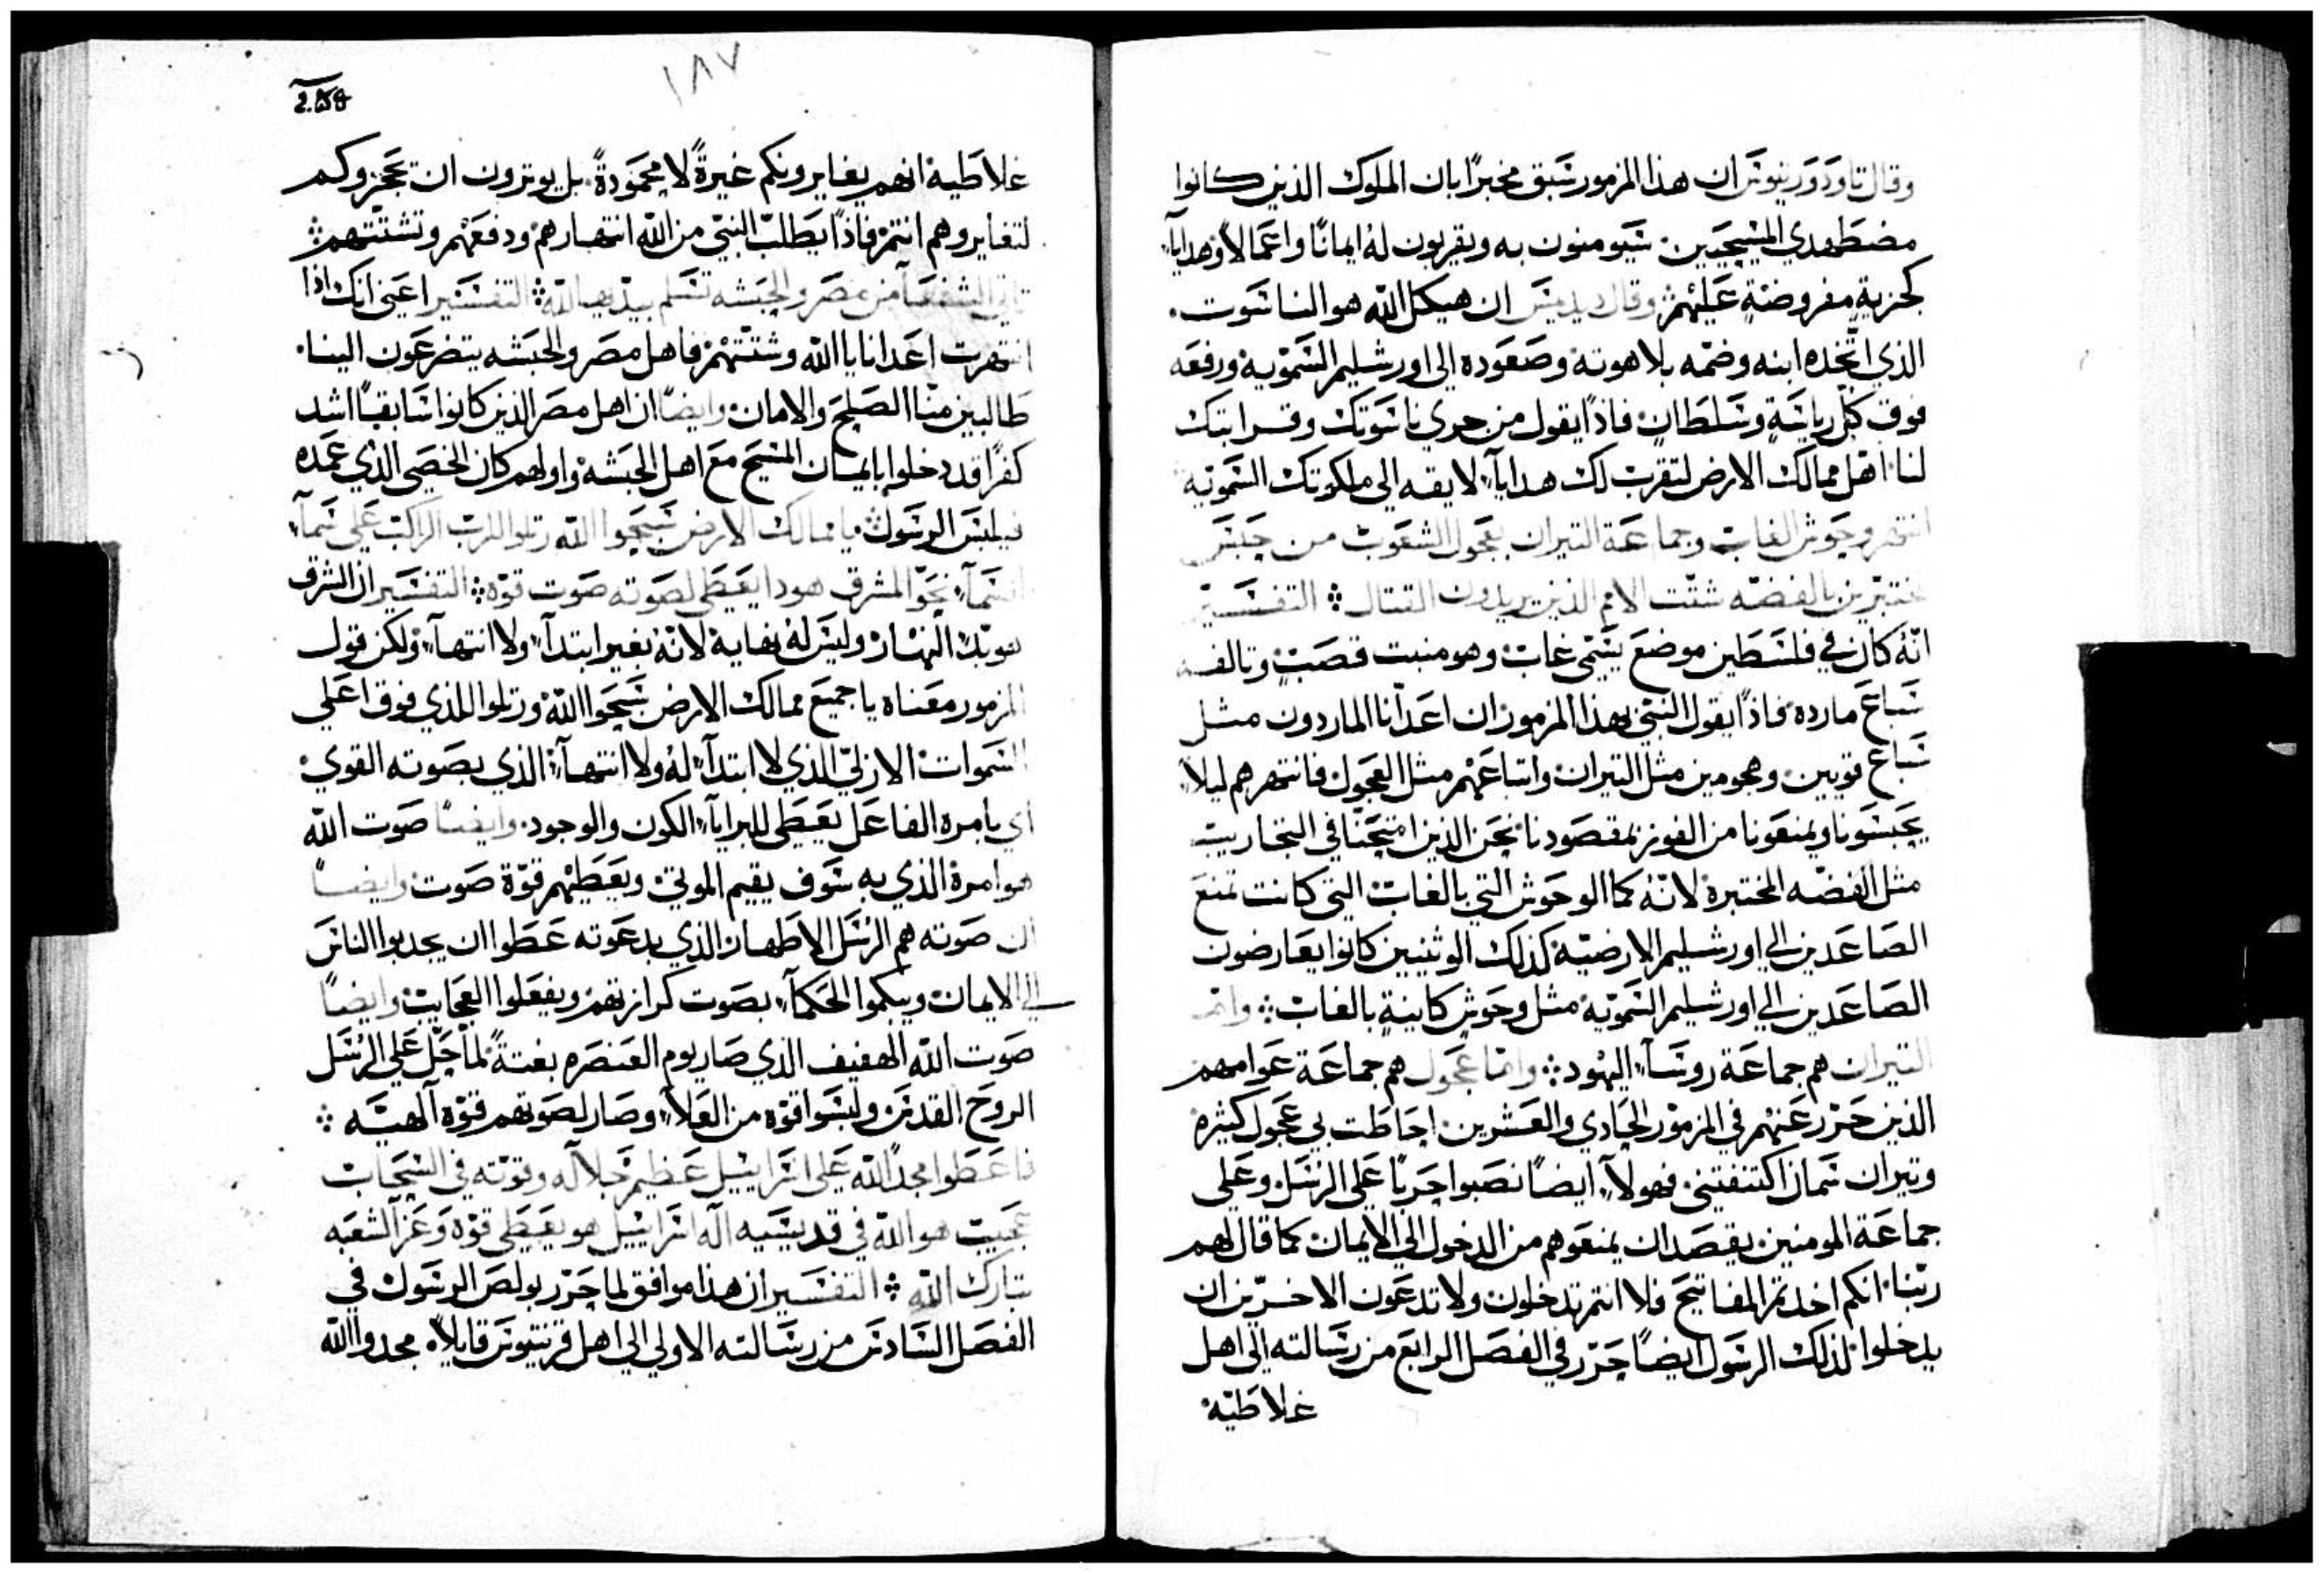 وقال تاودوريتوس ان هذا المزمور سبق مخبرًا بان الملوك الذين كانوا
مضطهدي المسيحيين سيومنون به ويقربون له ايمانًا واعمالاً وهدايآء
كجزية مفروضة عليهم وقال ديديمس ان هيكل الله هو الناسوت
الذي اتخده ابنه وضمه بلاهوته وصعوده الى اورشليم السموية ورفعه
فوق كل رياسة وسلطان فاذًا يقول من جري ناسوتك وقرابتك
لنا اهل ممالك الارض لتقرب لك هدايآء لايقه الى ملكوتك السموية
انتهر وحوش الغاب وجماعة التيران بعجول الشعوب من حبس
مختبرين بالفضه شتت الامم الذين يريدون القتال التفسير
انه كان في فلسطين موضع يسمى غاب وهو منبت قصب وتالفه
سباع مارده فاذًا يقول النبي بهذا المزمور ان اعدآنا الماردون مثل
سباع قويين وهجومين مثل التيران واتباعهم مثل العجول فانتهرهم ليلا
يحبسونا ويمنعونا من الفوز بمقصودنا نحن الذين امتحنا في التجاريب
مثل الفضه المختبرة لانه كما الوحوش التي بالغاب التي كانت تمنع
الصاعدين الى اورشليم الارضية كذلك الوثنيين كانوا يعارضون
الصاعدين الى اورشليم السموية مثل وحوش كاينة بالغاب وانما
التيران هم جماعة روسآء اليهود وانما عجول هم جماعة عوامهم
الذين حرر عنهم في المزمور الحادي والعشرين احاطت بي عجول كثيرة
وتيران سمان اكتنفتني فهولآء ايضًا نصبوا حربًا على الرسل وعلى
جماعة المومنين بقصد ان يمنعوهم من الدخول الى الايمان كما قال لهم
ربنا انكم اخدتم المفاتيح فلا انتم تدخلون ولا تدعون الاخرين ان
يدخلوا لذلك الرسول ايضًا حرر في الفصل الرابع من رسالته الى اهل
غلاطية
١٨٧
غلاطية انهم يغايرونكم غيرةً لا محمودةً بل يوترون ان تحجزوكم
لتغايروهم انتم فاذًا يطلب النبي من الله انتهارهم ودفعهم وتشتتهم
تاتي الشفعآ من مصر والحبشه تسلم يديها لله التفسير اعني انك اذا
انتهرت اعدانا يا الله وشتتهم فاهل مصر والحبشه يتضرعون الينا
طالبين منا الصلح والامان وايضًا ان اهل مصر الذين كانوا سابقًا اشد
كفرًا قد دخلوا بايمان المسيح مع اهل الحبشة واولهم كان الخصي الذي عمده
فيلبس الرسول يا ممالك الارض سبحوا الله رتلوا للرب الراكب على سمآء
السمآء نحو المشرق هودا يعطي لصوته صوت قوة التفسير ان الشرق
هو بدء النهار وليس له نهاية لانه بغير ابتدآء ولا انتهآء ولكن قول
المزمور معناه يا جميع ممالك الارض سبحوا الله ورتلوا للذي فوق اعلى
السموات الازلي الذي لا ابتدآء له ولا انتهآء الذي بصوته القوي
اي بامره الفاعل يعطي للبرايآء الكون والوجود وايضًا صوت الله
هو امره الذي به سوف يقيم الموتى ويعطيهم قوة صوت وايضًا
ان صوته هم الرسل الاطهار الذي بدعوته عطوا ان يجدبوا الناس
الى الايمان ويبكموا الحكمآء بصوت كرازتهم ويفعلوا العجايب وايضًا
صوت الله الهفيف الذي صار يوم العنصره بغتةً لما حل على الرسل
الروح القدس ولبسوا قوه من العلاء وصار لصوتهم قوة آلهية
فاعطوا مجدًا لله على اسراييل عظيم جلاله وقوته في السحاب
عجيب هو الله في قديسيه اله اسراييل هو يعطي قوة وعزآ لشعبه
تبارك الله التفسير ان هذا موافق لما حرر بولص الرسول في
الفصل السادس من رسالته الاولى الى اهل قرنتيوس قايلاً مجدوا الله